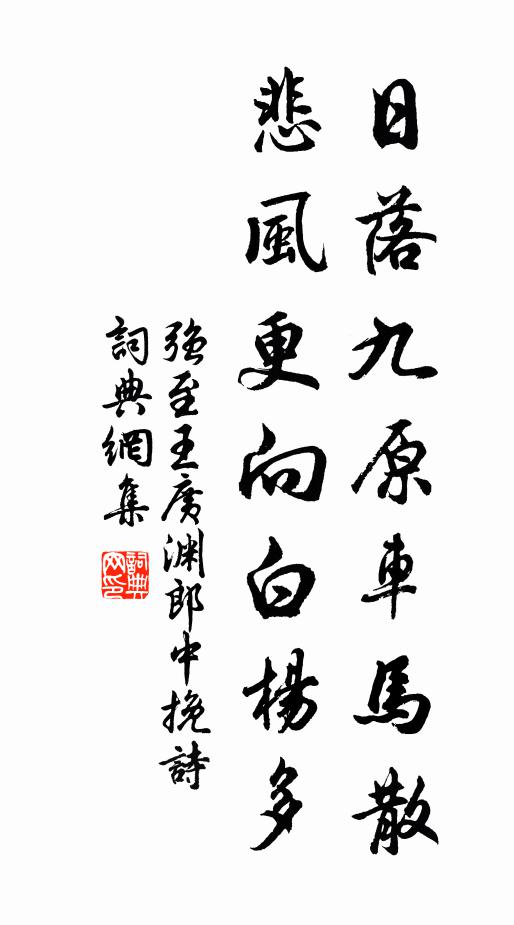 日落九原車馬散
悲風更向白楊多
強至王廣渊郎中挽詩
詞典網集
詞典
网印